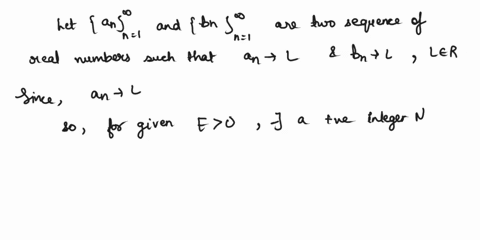 Let {an}∞n=1 and {bn}∞n=1 are two sequence of
real numbers such that an → L & bn → L , L∈R
Since, an → L
so, for given ε>0 , ∃ a +ve integer N